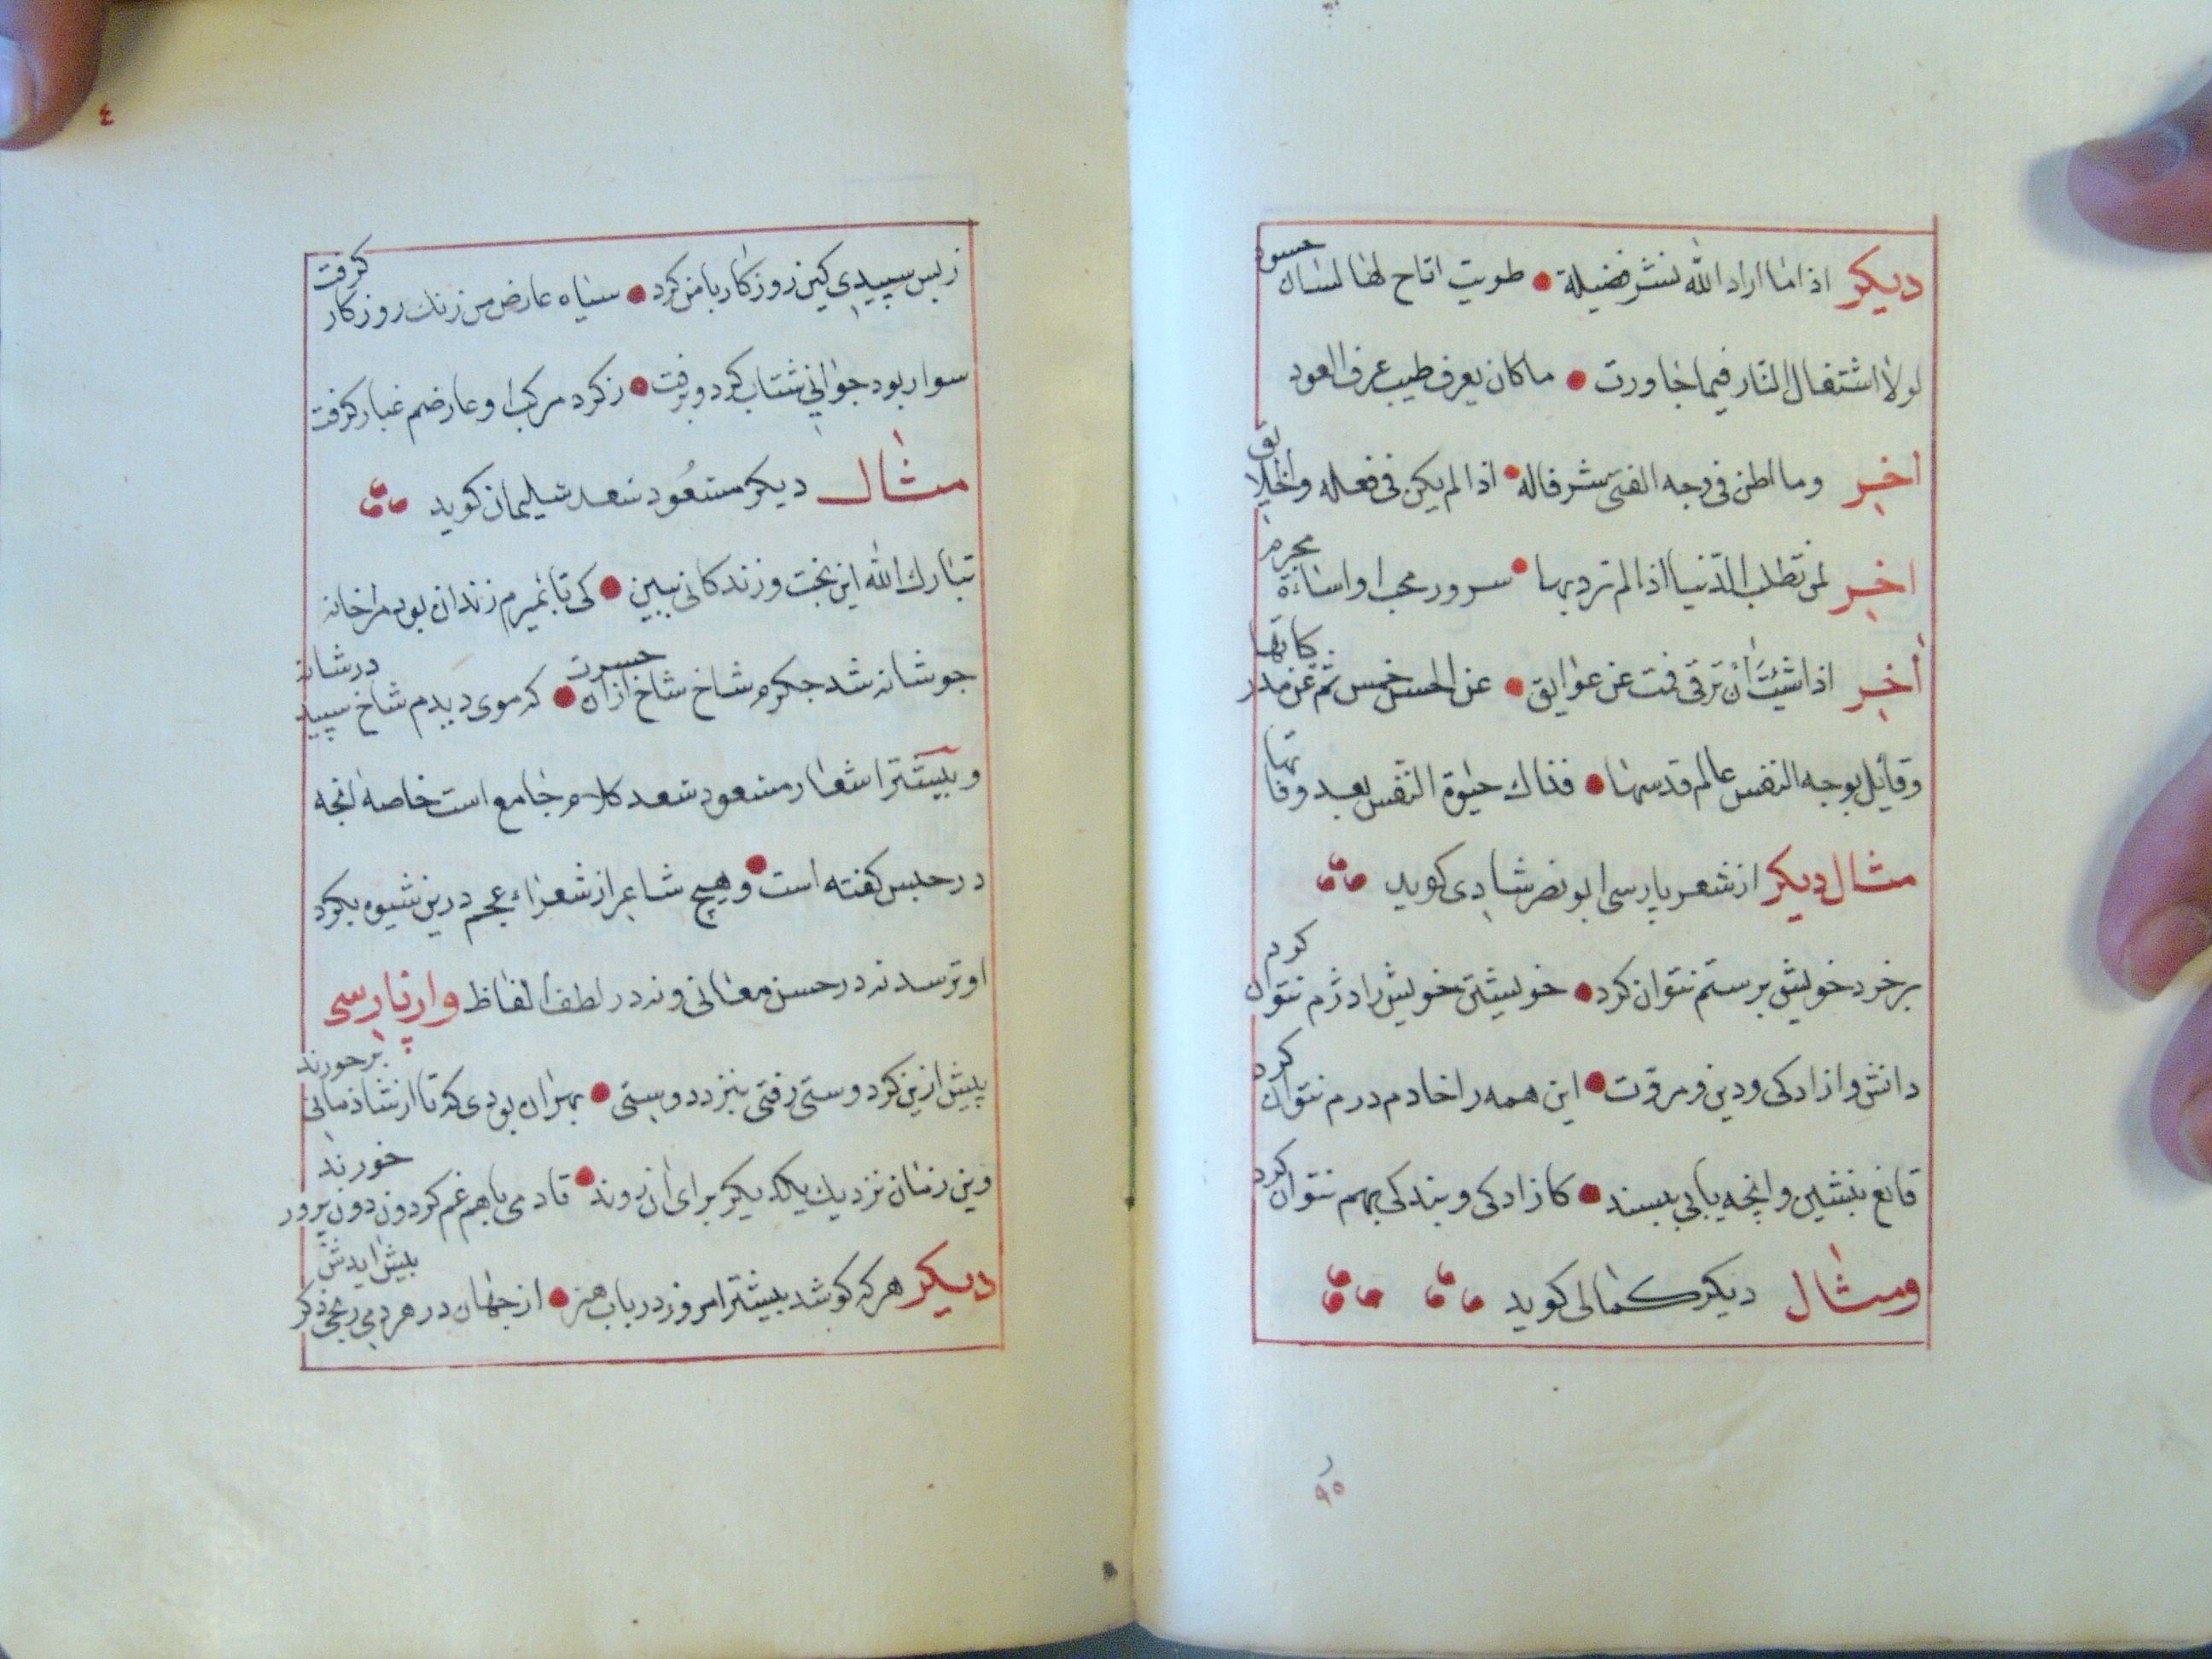 دیکر اذا ما اراد الله نشر فضیلة ● طویت اتاح لها لسان حسود
لولا اشتغال النار فیما جاورت ● ما کان یعرف طیب عرف العود
اخر وما اطن فی وجه الفتی شرفا له ● اذا لم یکن فی فعله والخلایق
اخر لمن تطلب الدنیا اذا لم ترد بها ● سرور محب او اساءة مجرم
اخر اذا شئت ان ترقی فمت عن عوایق ● عن الحس خمس ثم عن مدرکاتها
وقابل بوجه النفس عالم قدسها ● فذاك حیوة النفس بعد وفاتها
مثال دیکر از شعر پارسی ابو نصر شادی کوید
بر خرد خویش بر ستم نتوان کرد ● خویشتن خویش را دژم نتوان کرد
دانش و ازادکی و دین و مروت ● این همه را خادم درم نتوان کرد
قانع بنشین و انچه یابی بپسند ● کازادکی و بندکی بهم نتوان کرد
ومثال دیکر کمالی کوید
٩٥
٤
زبس سپیدی کین روزکار با من کرد ● سیاه عارض من زنك روزکار کرفت
سوار بود جوانی شتاب کرد و برفت ● زکرد مرکب او عارضم غبار کرفت
مثال دیکر مسعود سعد سلیمان کوید
تبارك الله این بخت و زندکانی بین ● کی تا بمیرم زندان بود مرا خانه
جو شانه شد جکرم شاخ شاخ ازان حسرت ● که موی دیدم شاخ سپید در شانه
و بیشتر اشعار مسعود سعد کلام جامع است خاصه انچه
در حبس کفته است ● و هیچ شاعر از شعراء عجم درین شیوه بکرد
او نرسد نه در حسن معانی و نه در لطف الفاظ وار پارسی
پیش ازین کر دوستی رفتی بنزد دوستی ● بهر ان بودی که تا از شاذمانی بر خورند
وین زمان نزدیك یکدیکر برای ان روند ● تا دمی با هم غم کردون دون پرور خورند
دیکر هر که کوشد بیشتر امروز در باب هنر ● از جهان در هر دمی رنجی دکر بیش ایدش